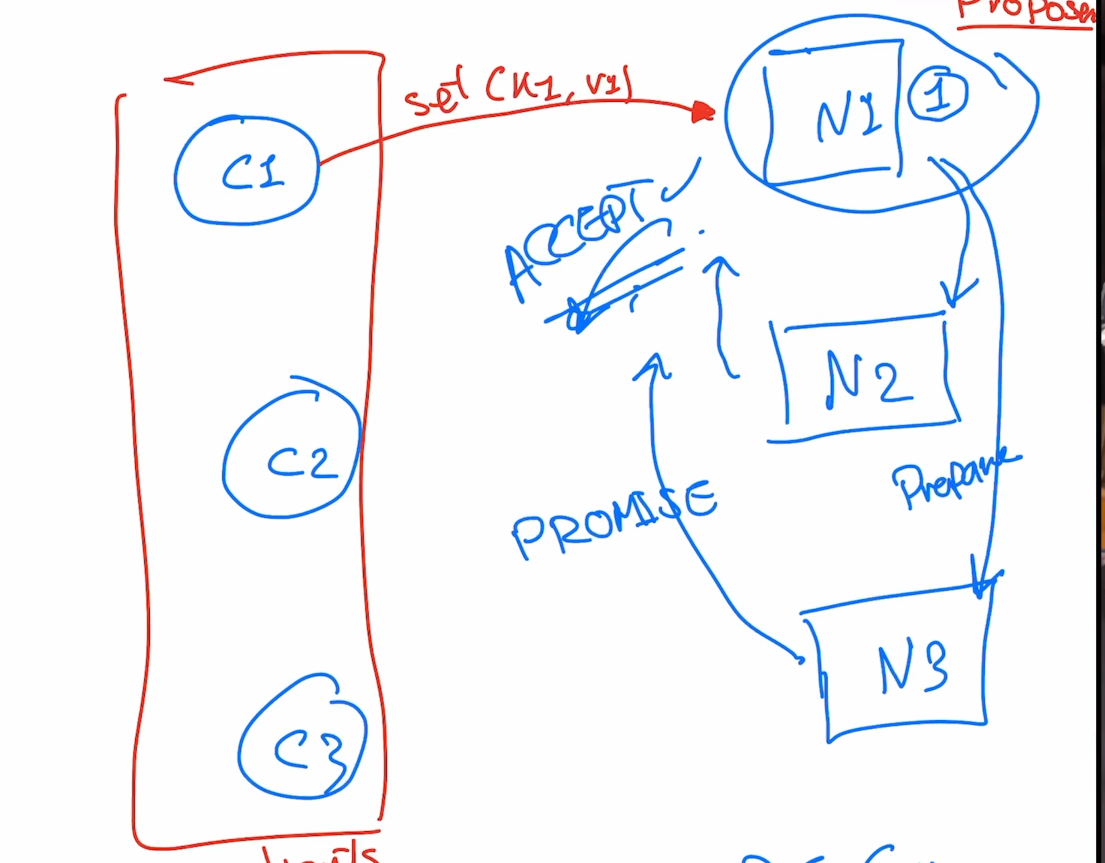 Proposer
set (K1, V1)
C1
N1
1
ACCEPT
N2
C2
Prepare
PROMISE
N3
C3